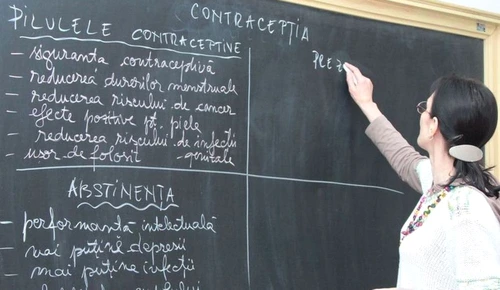 CONTRACEPȚIA
PILULELE CONTRACEPTIVE
- siguranta contraceptivă
- reducerea durerilor menstruale
- reducerea riscului de cancer
- efecte pozitive pt. piele
- reducerea riscului de infecții genitale
- usor de folosit
PREZ
ABSTINENȚA
- performantă intelectuală
- mai puține depresii
- mai puține infecții